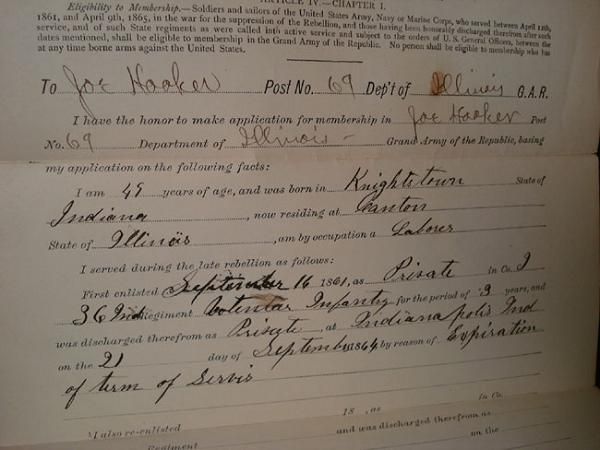 ARTICLE IV.—CHAPTER I.
Eligibility to Membership.—Soldiers and sailors of the United States Army, Navy or Marine Corps, who served between April 12th,
1861, and April 9th, 1865, in the war for the suppression of the Rebellion, and those having been honorably discharged therefrom after such
service, and of such State regiments as were called into active service and subject to the orders of U. S. General Officers, between the
dates mentioned, shall be eligible to membership in the Grand Army of the Republic. No person shall be eligible to membership who has
at any time borne arms against the United States.
To Joe Hooker Post No. 69 Dep't of Illinois G.A.R.
I have the honor to make application for membership in Joe Hooker Post
No. 69 Department of Illinois Grand Army of the Republic, basing
my application on the following facts:
I am 49 years of age, and was born in Knightstown State of
Indiana, now residing at Canton
State of Illinois, am by occupation a Laborer
I served during the late rebellion as follows:
First enlisted September 16 1861, as Private in Co. I
36 Ind Regiment Volentar Infantry for the period of 3 years, and
was discharged therefrom as Private, at Indianapolis Ind
on the 21 day of September 1864, by reason of Expiration
of term of Servis
18 , as in Co.
I also re-enlisted and was discharged therefrom as
Regiment on the